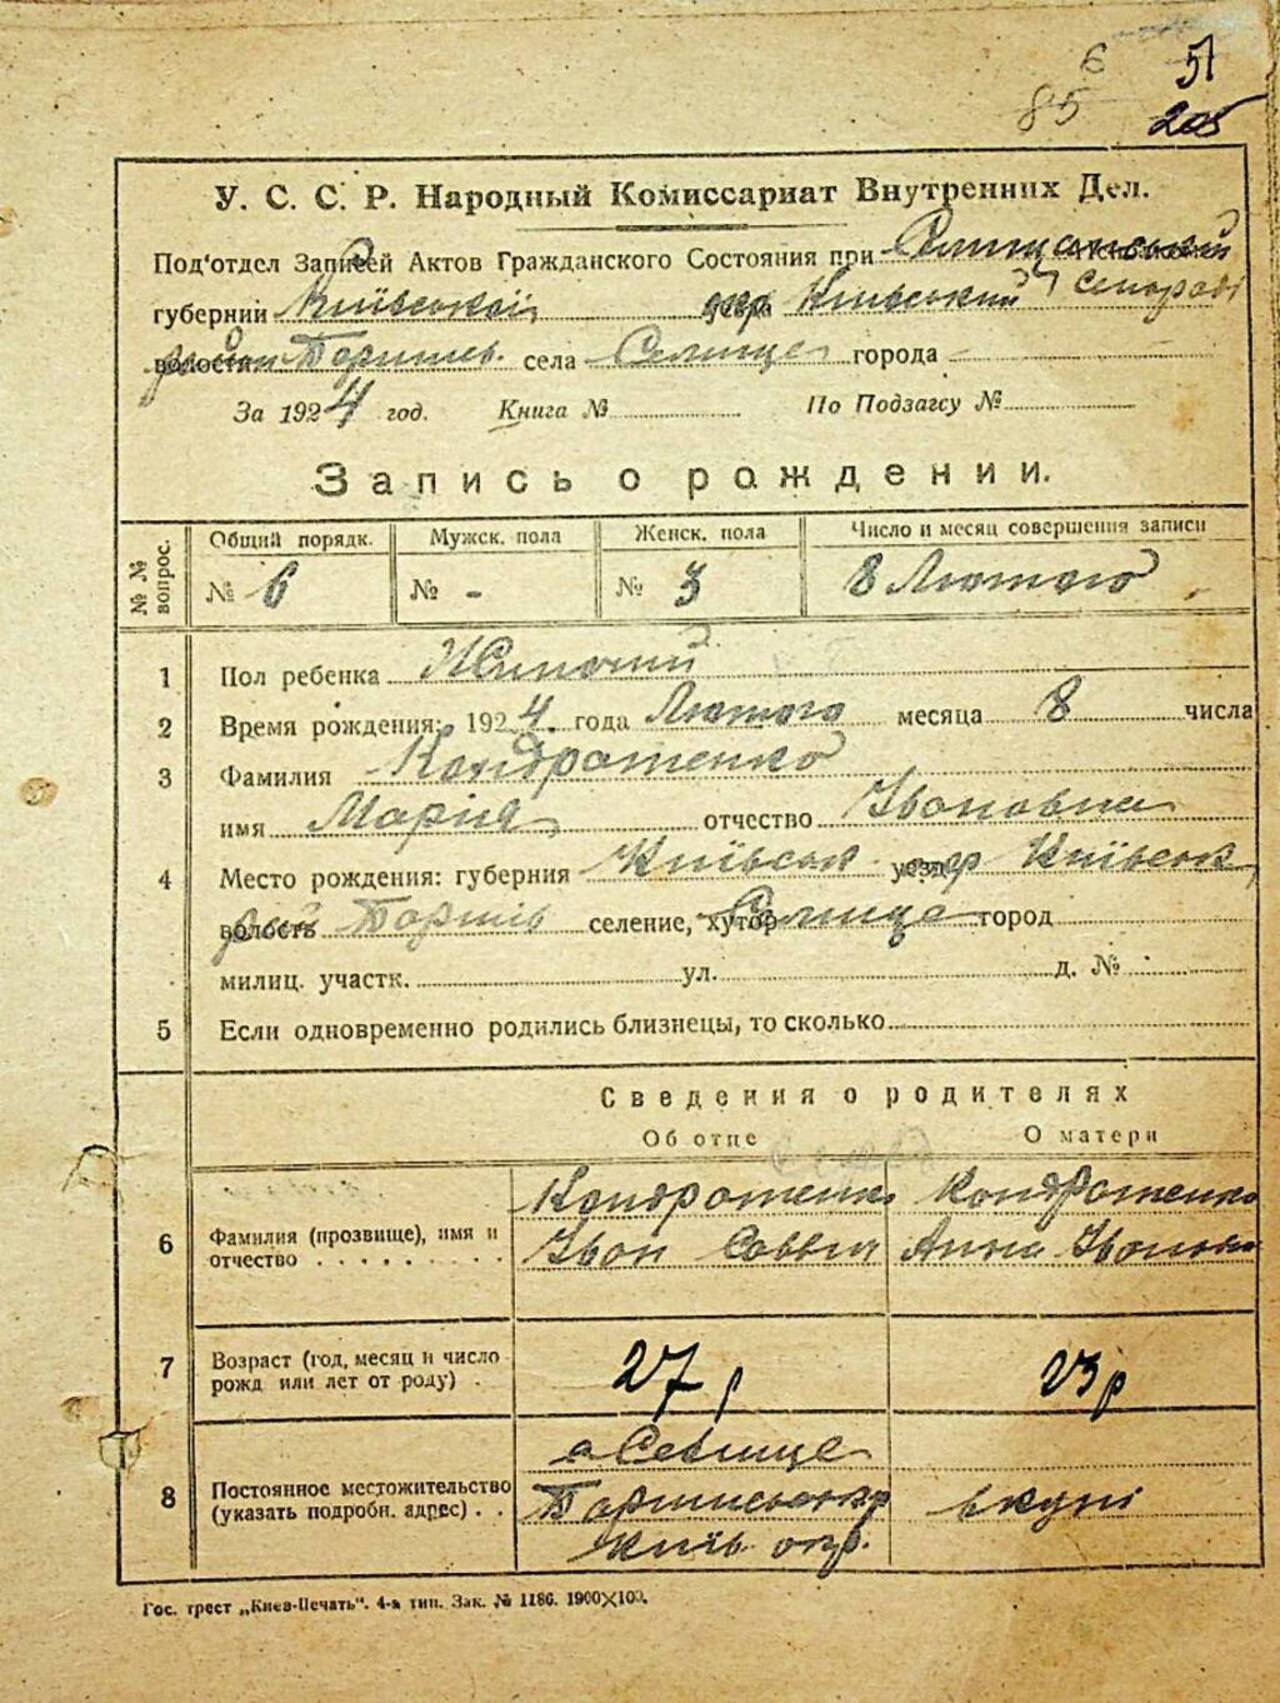 6 51
85 205
У. С. С. Р. Народный Комиссариат Внутренних Дел.
Под'отдел Записей Актов Гражданского Состояния при Селищанський
губернии Київській окр Київський сельраді
волости район Боришп. села Селище города
За 1924 год. Книга № По Подзагсу №
Запись о рождении.
№ № вопрос. Общий порядк. Мужск. пола Женск. пола Число и месяц совершения записи
№ 6 № - № 3 8 Лютого
1 Пол ребенка Жиночий
2 Время рождения: 1924 года Лютого месяца 8 числа
3 Фамилия Кондратенко
имя Марія отчество Івановна
4 Место рождения: губерния Київськ уезд окр Київськ
волость селение, хутор Селище город
милиц. участк. ул. д. №
5 Если одновременно родились близнецы, то сколько
Сведения о родителях
Об отце О матери
Кондратенко Кондратенко
6 Фамилия (прозвище), имя и Іван Анна Івановна
отчество
7 Возраст (год, месяц и число 27 р 23 р
рожд или лет от роду) .
с Селище
8 Постоянное местожительство вкупі
(указать подробн. адрес) . .
Київ. окр.
Гос. трест „Киев-Печать". 4-я тип. Зак. № 1186. 1900×100.